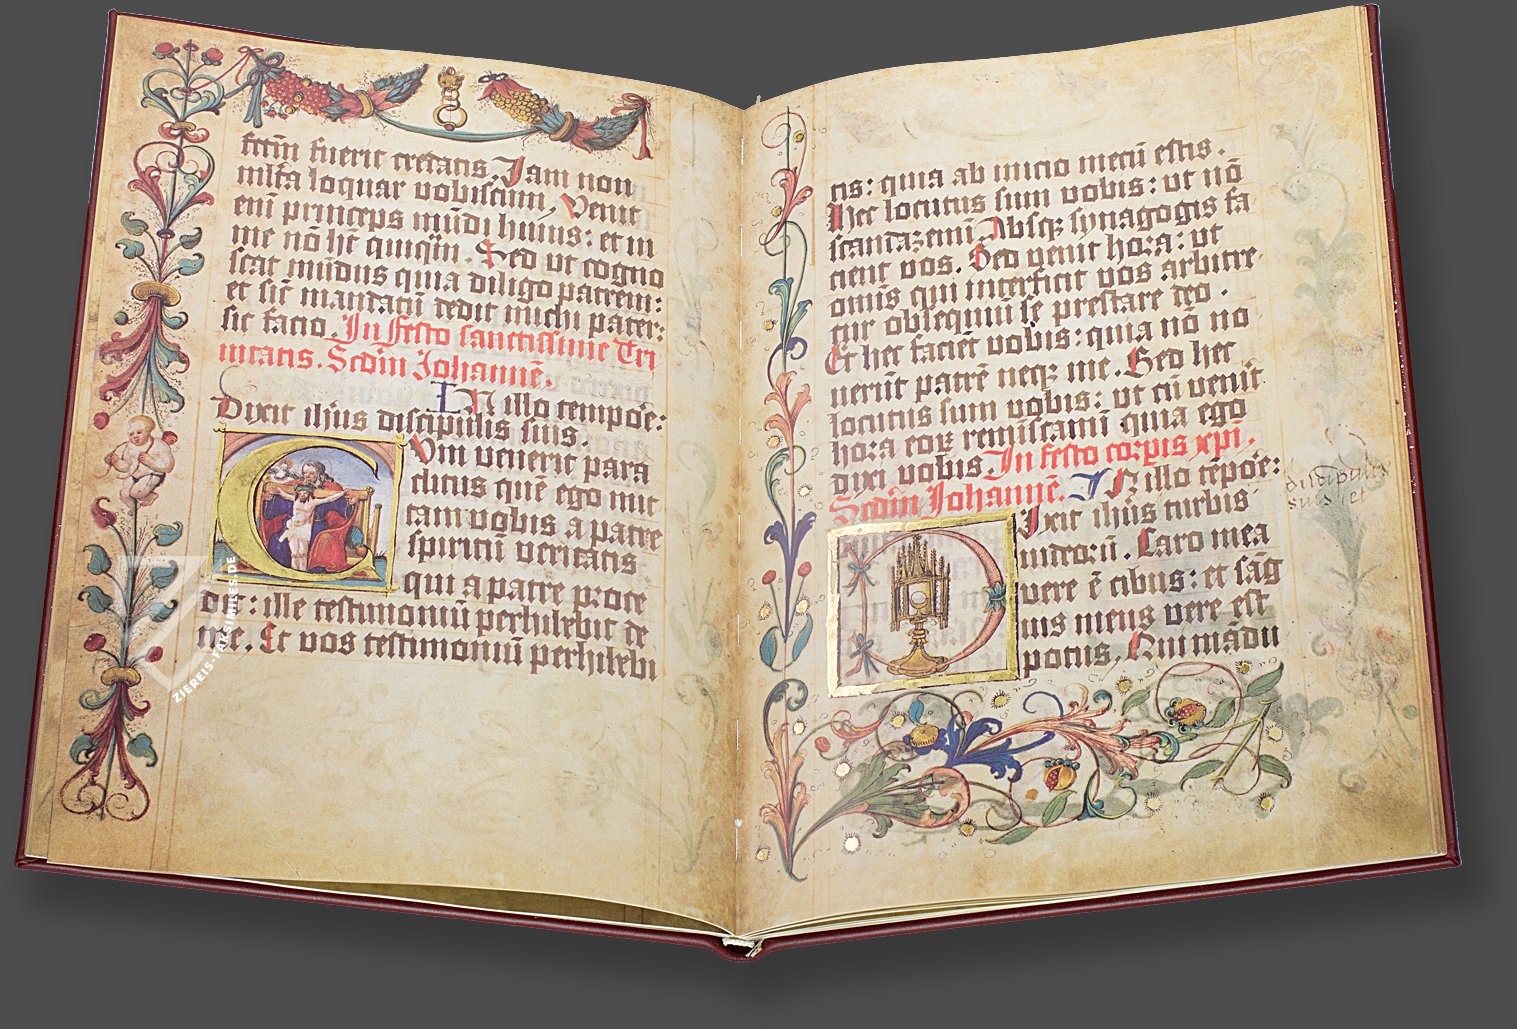 ftrm fuerit cretatis. Jam non
mlta loquar vobiscum, Venit
eni princeps mūdi huius: et in
me nō ht quiqm. Sed ut cogno
scat mūdus quia diligo patrem:
et sic mandatū dedit michi pater:
sic facio. In festo sanctissime Tri
nitatis. Scdm Johannē.
IN illo tempoe:
Dixit ihus discipulis suis.
Cum venerit para
clitus quē ego mit
tam vobis a patre
spiritū veritatis
qui a patre proce
dit: ille testimoniū perhibebit de
me. Et vos testimoniū perhibebi
tis: quia ab inicio mecū estis.
Hec locutus sum vobis: ut nō
scandazemī Absq; synagogis fa
cient vos. Sed venit hora: ut
omīs qui interficit vos arbitre
tur obsequiū se prestare deo.
Et hec faciēt vobis: quia nō no
verūt patrē neq; me. Sed hec
locutus sum vobis: ut cū venīt
hora eoꝝ remiscamī quia ego
dixi vobis. In festo corpis xpi.
Scdm Johannē. IN illo tēpoe:
Dixit ihus turbis
iudeorū. Caro mea
vere ē cibus: et sāg
uis meus vere est
potus. Qui mādu
discipulis
suis et
ZIEREIS-FAKSIMILES.DE